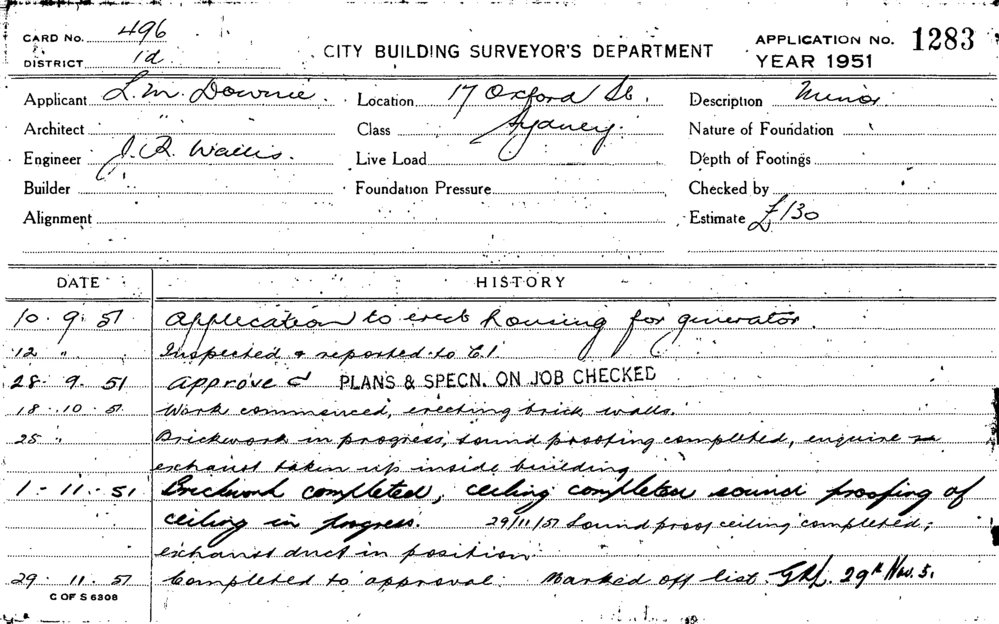 CARD No. 496
DISTRICT 1d
CITY BUILDING SURVEYOR'S DEPARTMENT
APPLICATION No. 1283
YEAR 1951
Applicant L. M. Downie. Location 17 Oxford St. Description Minor
Architect " Class Sydney. Nature of Foundation
Engineer J. R. Wallis. Live Load Depth of Footings
Builder Foundation Pressure Checked by
Alignment Estimate £130
DATE HISTORY
10. 9. 51 Application to erect housing for generator.
12 " Inspected & reported to C.I.
28. 9. 51 Approved PLANS & SPECN. ON JOB CHECKED
18. 10. 51 Work commenced, erecting brick walls.
25 " Brickwork in progress, sound proofing completed, enquire re
exhaust taken up inside building
1 - 11. 51 Brickwork completed, ceiling completed sound proofing of
ceiling in progress. 29/11/51 Sound proof ceiling completed;
exhaust duct in position
29. 11. 51 Completed to approval. Marked off list. 29th Nov. 51
C OF S 6308